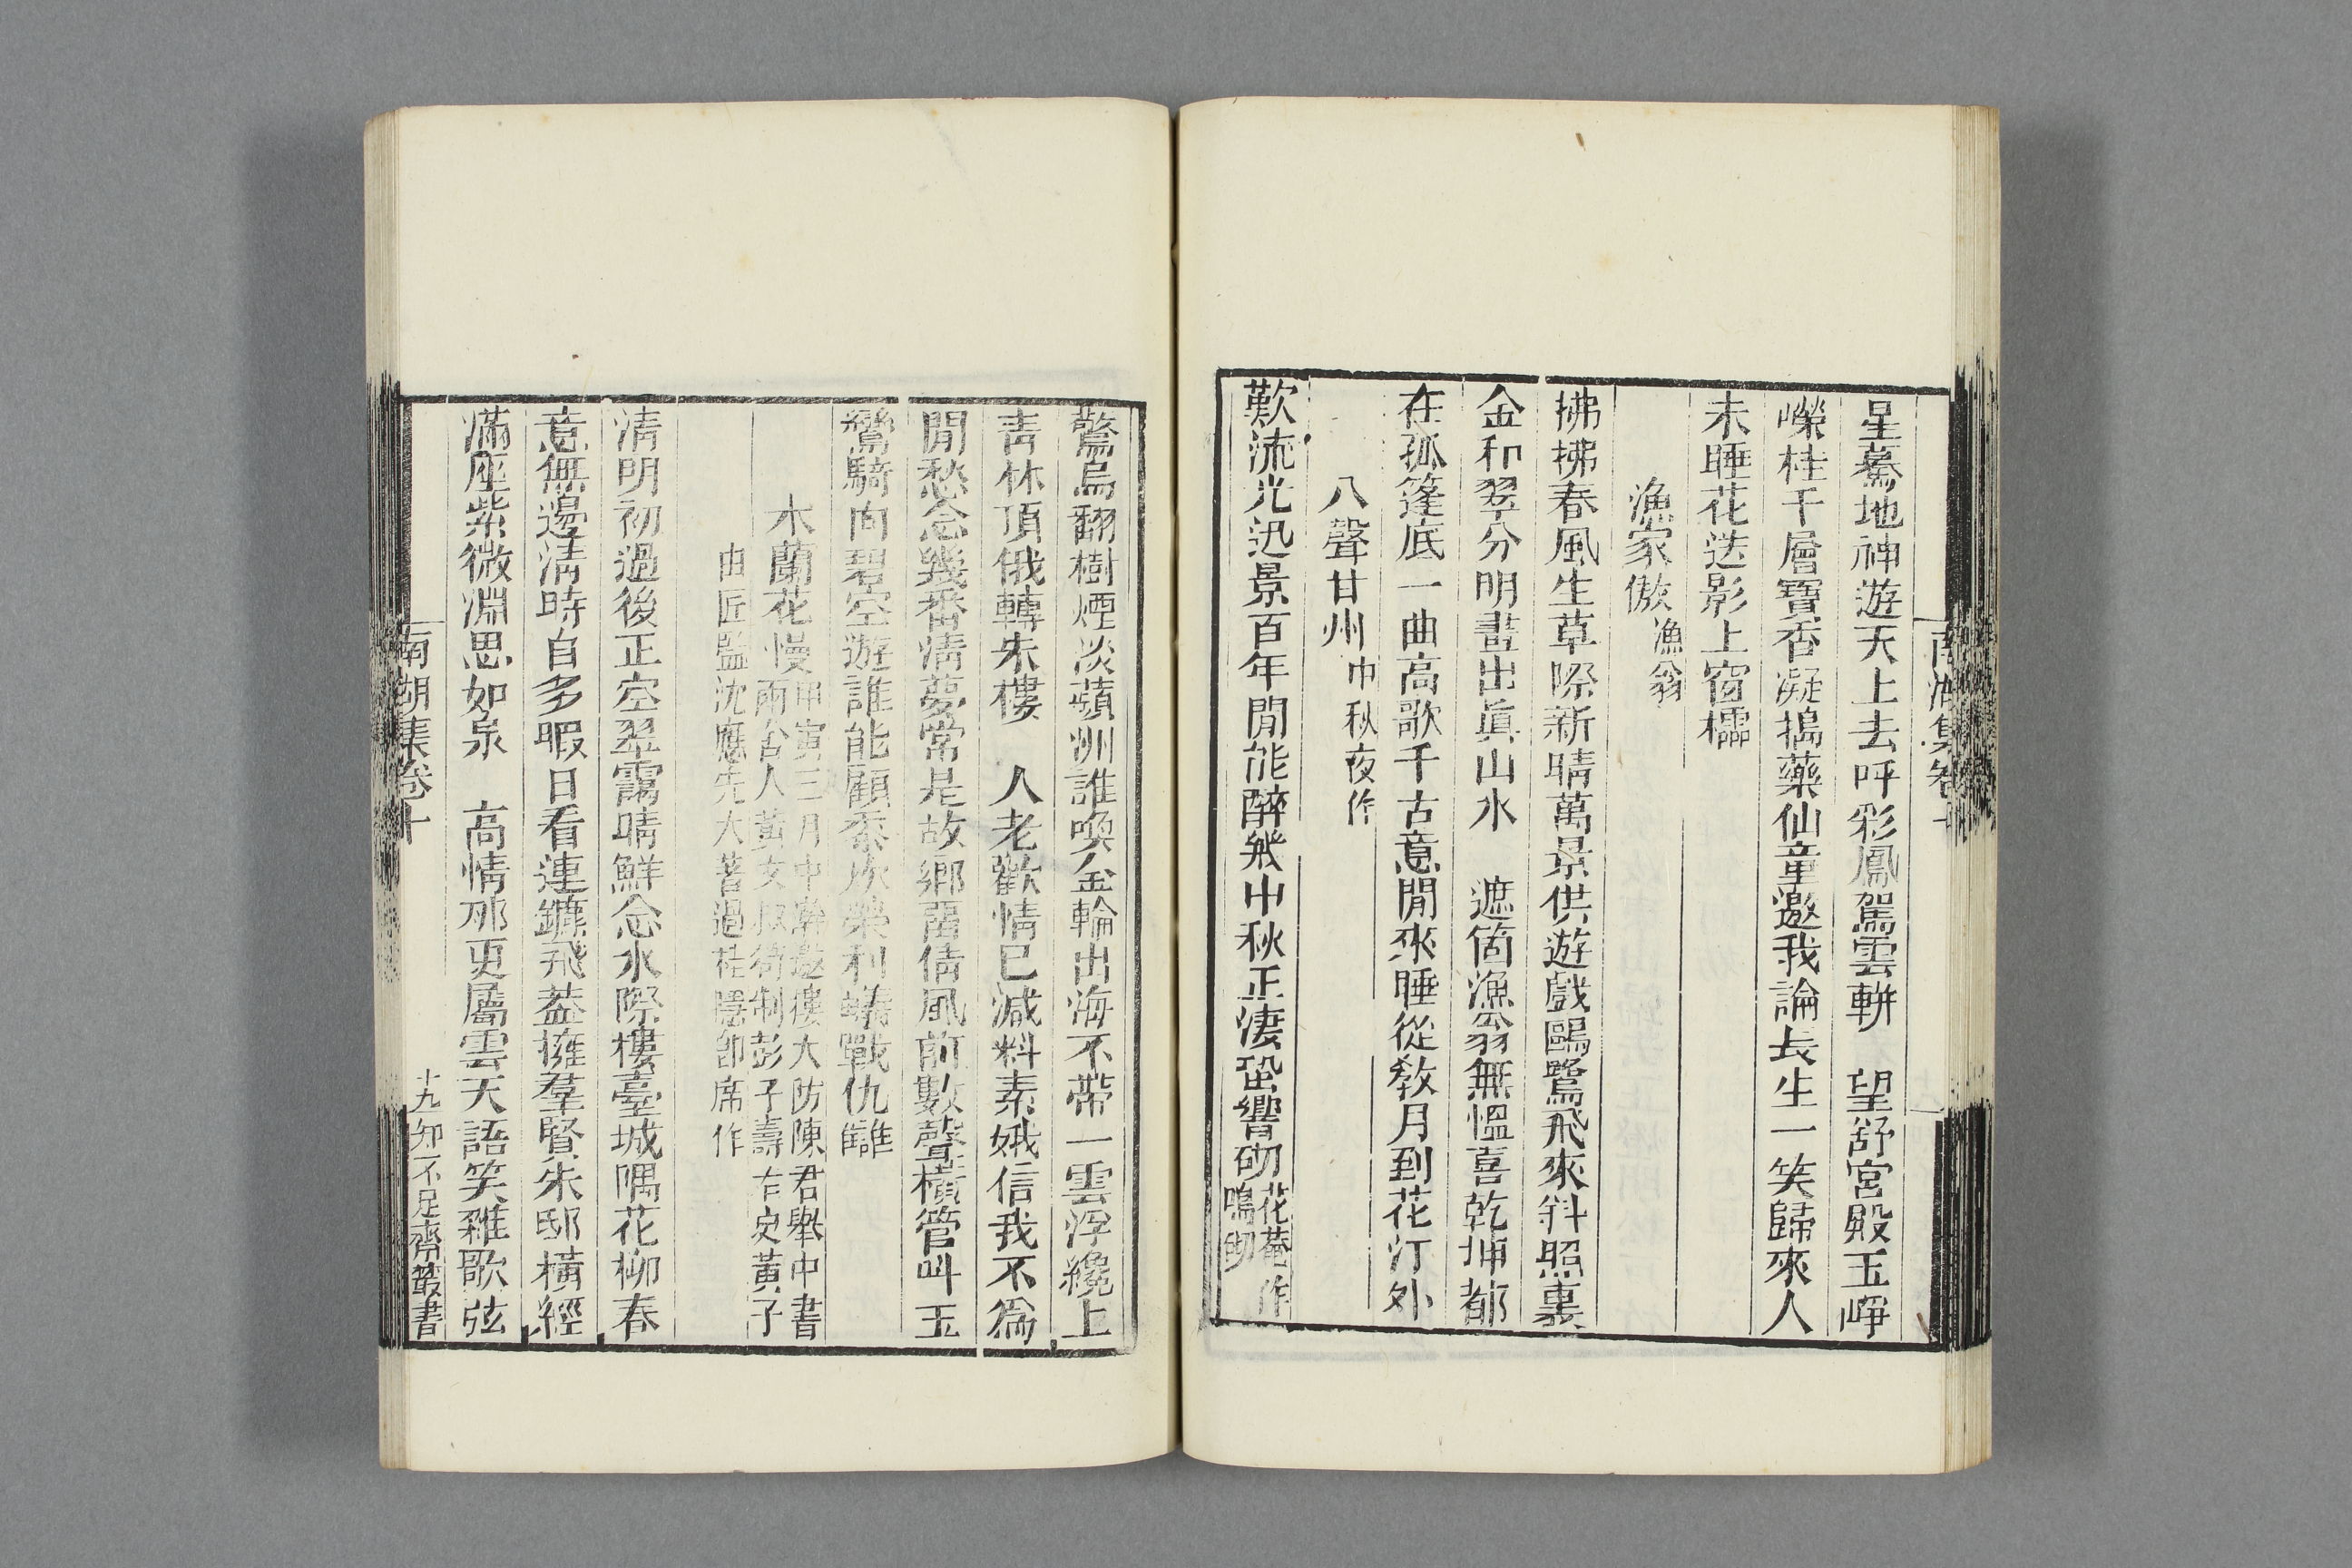 南湖集卷十
星驀地神遊天上去呼彩鳳駕雲輧　望舒宮殿玉崢
嶸桂千層寶香凝搗藥仙童邀我論長生一笑歸來人
未睡花送影上窗櫺
漁家傲漁翁
拂拂春風生草際新晴萬景供遊戲鷗鷺飛來斜照裏
金和翠分明畫出眞山水　遮箇漁翁無慍喜乾坤都
在孤篷底一曲高歌千古意閒來睡從教月到花汀外
八聲甘州中秋夜作
歎流光迅景百年閒能醉幾中秋正淒蛩響砌花菴作鳴砌
驚烏翻樹煙淡蘋洲誰喚金輪出海不帶一雲浮纔上
靑林頂俄轉朱樓　人老歡情已減料素娥信我不爲
閒愁念幾番淸夢常是故鄉畱倩風前數聲橫管叫玉
鸞騎向碧空遊誰能顧黍炊榮利蟻戰仇讎
木蘭花慢甲寅三月中澣邀樓大防陳君舉中書
兩舍人黃文叔待制彭子壽右史黃子
由匠監沈應先大著過桂隱卽席作
淸明初過後正空翠靄晴鮮念水際樓臺城隅花柳春
意無邊淸時自多暇日看連鑣飛蓋擁羣賢朱邸橫經
滿座紫微淵思如泉　高情那更屬雲天語笑雜歌弦
南湖集卷十　十九　知不足齋叢書